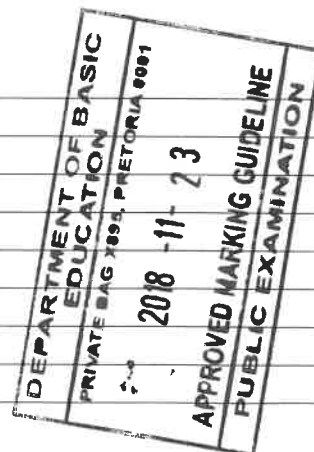 DEPARTMENT OF BASIC
EDUCATION
PRIVATE BAG X895, PRETORIA 0001
2018 -11- 23
APPROVED MARKING GUIDELINE
PUBLIC EXAMINATION